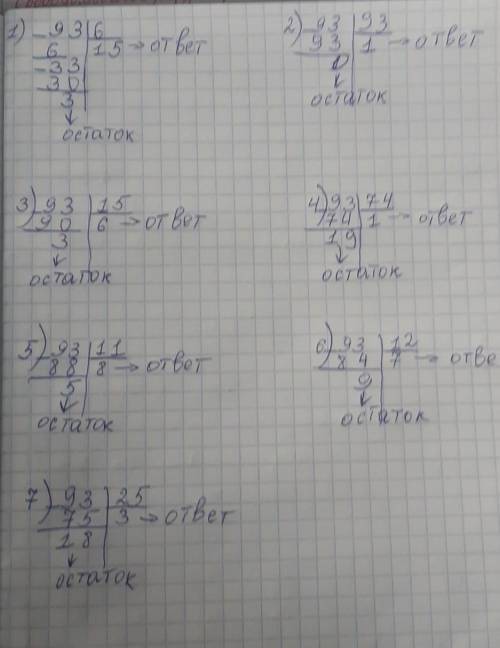 1) -93|6
6 |15 → ответ
-33
30
3
↓
остаток
2) -93|93
93|1 → ответ
0
↓
остаток
3) -93|15
90|6 → ответ
3
↓
остаток
4) -93|74
74|1 → ответ
19
↓
остаток
5) -93|11
88|8 → ответ
5
↓
остаток
6) -93|12
84|7 → отве
9
↓
остаток
7) -93|25
75|3 → ответ
18
↓
остаток